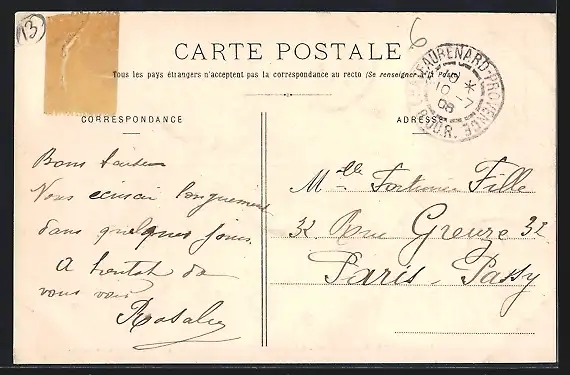 13
6
CARTE POSTALE
Tous les pays étrangers n'acceptent pas la correspondance au recto (Se renseigner à la Poste)
CORRESPONDANCE
ADRESSE
BEAUREPAIRE
10
7
08
Bons baisers
Vous écrirai longuement
dans quelques jours.
A bientôt de
vous voir
Rosalie
Mlle Fortunée Fille
32 Rue Greuze 32
Paris-Passy